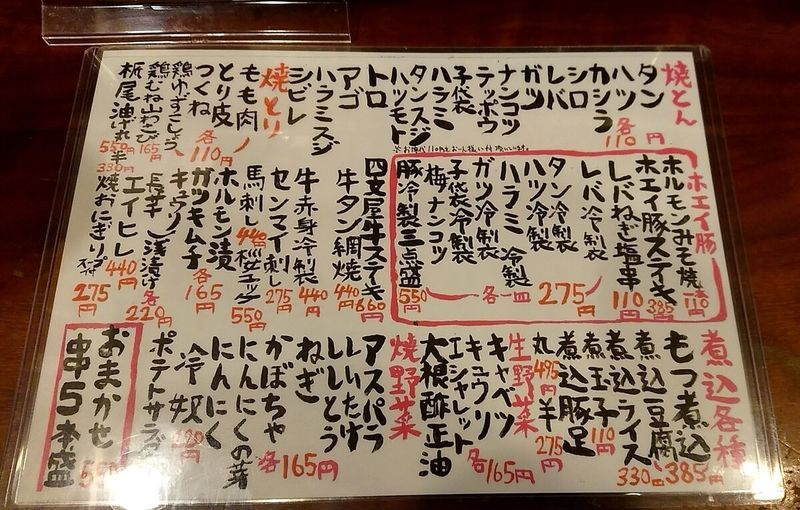 焼とん
タン
ハツ
カシラ
シロ
レバ
ガツ
ナンコツ
テッポウ
子袋
ハラミ
タンスジ
ハツモト
トロ
アゴ
ハラミスジ
シビレ
各110円
焼とり
もも肉
とり皮
つくね
各110円
鶏ゆずこしょう
鶏むね山わさび
165円
栃尾油げ
丸550円
半330円
ホエイ豚
ホルモンみそ焼110円
ホエイ豚ステーキ385円
レバねぎ塩串110円
レバ冷製
タン冷製
ハツ冷製
ハラミ冷製
ガツ冷製
子袋冷製
梅ナンコツ
各一皿275円
豚冷製三点盛550円
四文屋牛ステーキ660円
牛タン網焼440円
牛赤身冷製440円
センマイ刺し275円
馬刺し440円
桜ユッケ550円
ホルモン漬
ガツキムチ
各165円
キュウリ
長芋
浅漬け各220円
エイヒレ440円
焼おにぎりスープ付275円
煮込各種
もつ煮込385円
煮込豆腐
煮込ライス330円
煮玉子110円
煮込豚足
丸495円
半275円
生野菜
キャベツ
キュウリ
エシャレット
各165円
大根酢正油
焼野菜
アスパラ
しいたけ
ししとう
ねぎ
かぼちゃ
にんにくの芽
にんにく
各165円
冷奴
ポテトサラダ
おまかせ
串5本盛